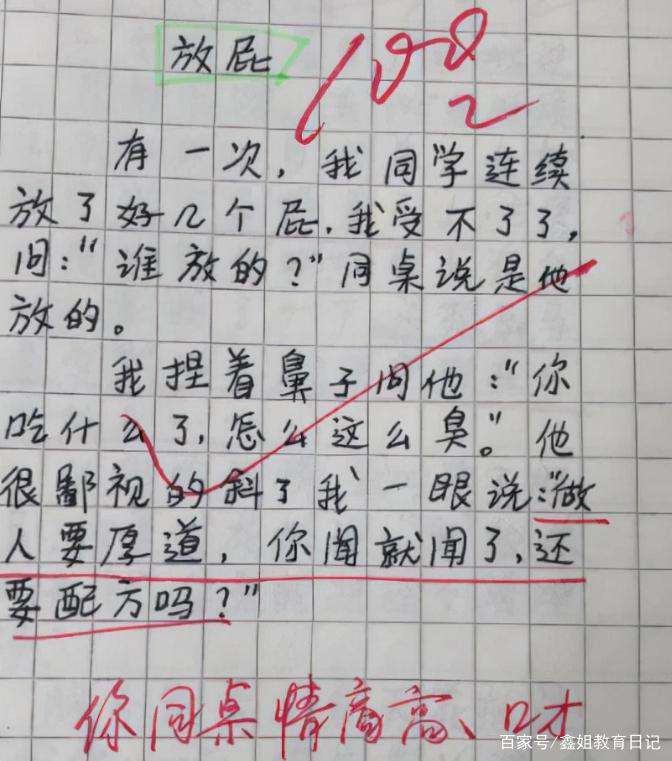 放屁
100
有一次,我同学连续
放了好几个屁,我受不了了,
问:“谁放的?”同桌说是他
放的。
我捏着鼻子问他:“你
吃什么了,怎么这么臭。”他
很鄙视的斜了我一眼说:“做
人要厚道,你闻就闻了,还
要配方吗?”
你同桌情商高、口才
百家号/鑫姐教育日记